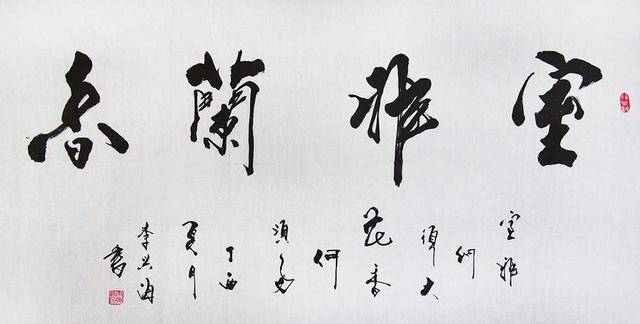 室雅蘭香
室雅
何
須大
花香
何
須多
丁酉
夏月
李兴海
書